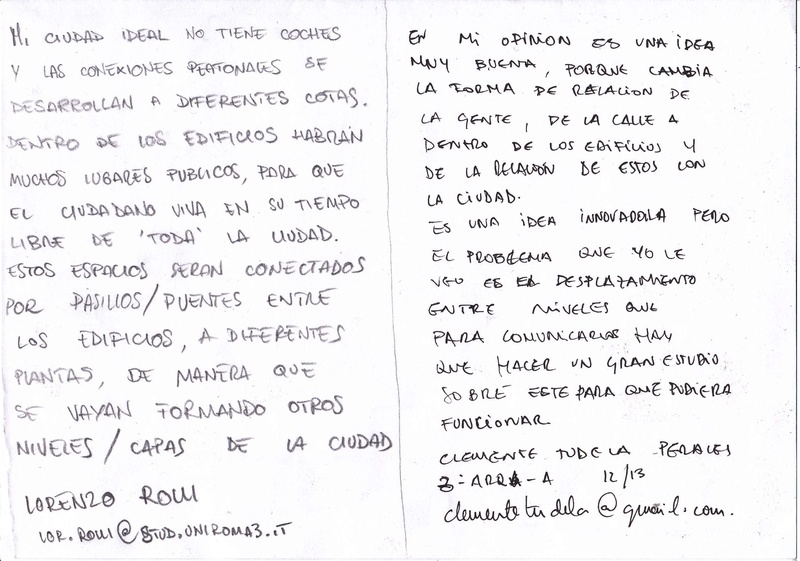 MI CIUDAD IDEAL NO TIENE COCHES
Y LAS CONEXIONES PEATONALES SE
DESARROLLAN A DIFERENTES COTAS.
DENTRO DE LOS EDIFICIOS HABRAN
MUCHOS LUGARES PUBLICOS, PARA QUE
EL CIUDADANO VIVA EN SU TIEMPO
LIBRE DE 'TODA' LA CIUDAD.
ESTOS ESPACIOS SERAN CONECTADOS
POR PASILLOS/PUENTES ENTRE
LOS EDIFICIOS, A DIFERENTES
PLANTAS, DE MANERA QUE
SE VAYAN FORMANDO OTROS
NIVELES/CAPAS DE LA CIUDAD
LORENZO ROLLI
LOR.ROLLI@STUD.UNIROMA3.IT
EN MI OPINION ES UNA IDEA
MUY BUENA, PORQUE CAMBIA
LA FORMA DE RELACION DE
LA GENTE, DE LA CALLE A
DENTRO DE LOS EDIFICIOS Y
DE LA RELACION DE ESTOS CON
LA CIUDAD.
ES UNA IDEA INNOVADORA PERO
EL PROBLEMA QUE YO LE
VEO ES EL DESPLAZAMIENTO
ENTRE NIVELES QUE
PARA COMUNICARLOS HAY
QUE HACER UN GRAN ESTUDIO
SOBRE ESTE PARA QUE PUDIERA
FUNCIONAR
CLEMENTE TUDELA PERALES
3º ARQ - A 12/13
clementetudela@gmail.com.